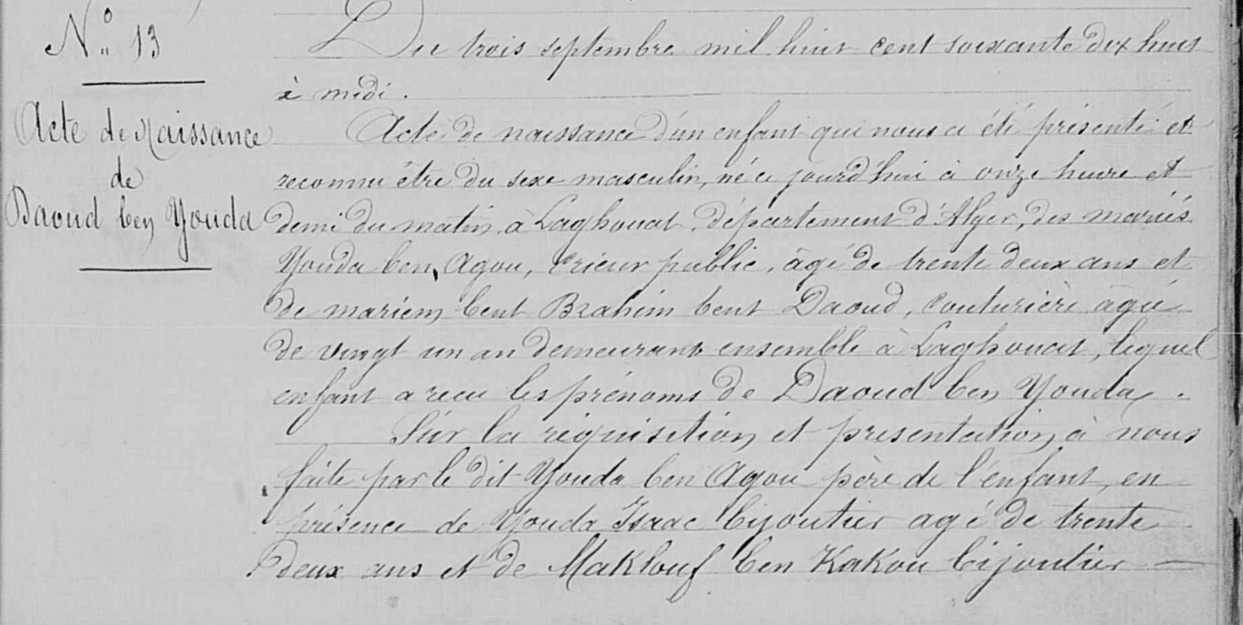 N° 13
Acte de Naissance
de
Daoud ben Youda
Du trois septembre mil huit cent soixante dix huit
à midi.
Acte de naissance d'un enfant qui nous a été présenté et
reconnu être du sexe masculin, né ce jourd'hui à onze heure et
demi du matin à Laghouat, département d'Alger, des mariés
Youda ben Agou, crieur public, âgé de trente deux ans et
de mariem bent Brahim bent Daoud, couturière âgée
de vingt un an demeurant ensemble à Laghouat, lequel
enfant a reçu les prénoms de Daoud ben Youda.
Sur la réquisition et présentation à nous
faite par le dit Youda ben Agou père de l'enfant, en
présence de Youda Isaac bijoutier agé de trente
deux ans et de Maklouf ben Kakou bijoutier